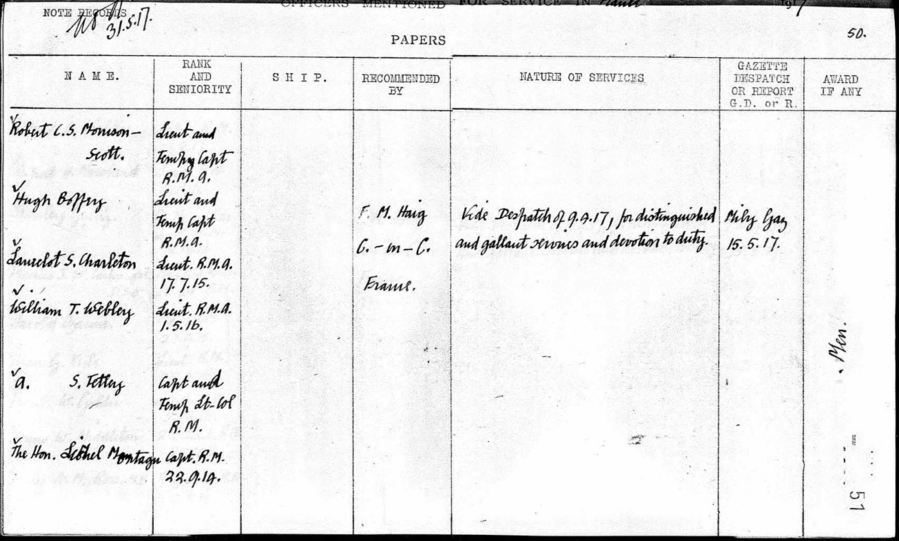 OFFICERS MENTIONED FOR SERVICE IN France 1917
NOTE RECORDS
31.5.17.
50.
PAPERS
NAME.
RANK
AND
SENIORITY
SHIP.
RECOMMENDED
BY
NATURE OF SERVICES
GAZETTE
DESPATCH
OR REPORT
G.D. or R.
AWARD
IF ANY
Robert C.S. Morrison-
Scott.
Lieut and
Tempy Capt
R.M.A.
Hugh Boffey
Lieut and
Temp Capt
R.M.A.
Lancelot S. Charleton
Lieut. R.M.A.
17.7.15.
William T. Webley
Lieut. R.M.A.
1.5.16.
A. S. Tetley
Capt and
Temp Lt-Col
R.M.
The Hon. Lionel Montagu
Capt. R.M.
22.9.14.
F. M. Haig
C.-in-C.
France.
Vide Despatch of 9.4.17, for distinguished
and gallant services and devotion to duty
Mily Gaz
15.5.17.
Men.
51